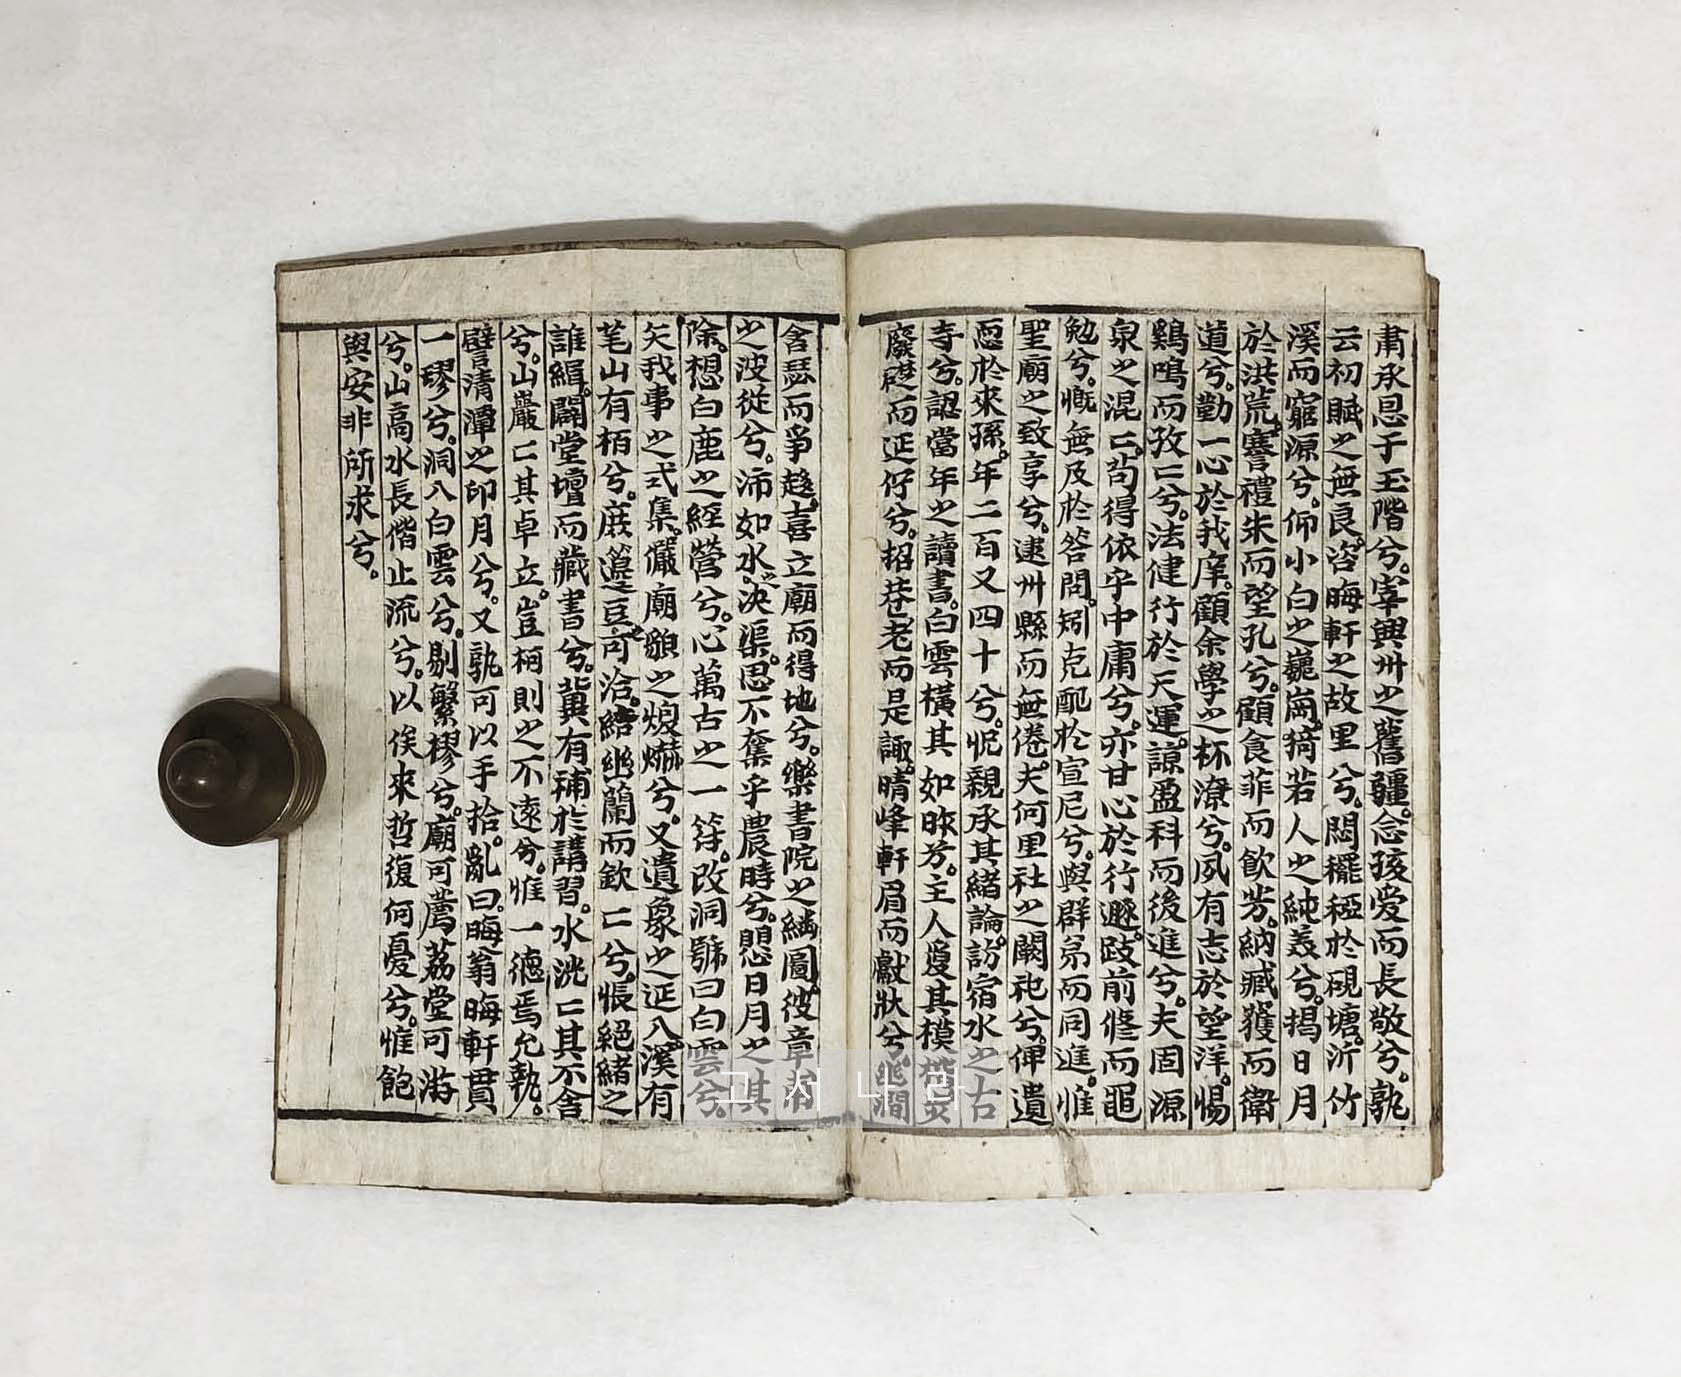 肅承恩于玉階兮。宰興州之舊疆。念孩愛而長敬兮。孰
云初賦之無良。咨晦軒之故里兮。悶穲稏於硯塘。沂竹
溪而窮源兮。仰小白之巍崗。猗若人之純義兮。揭日月
於洪荒。謇禮朱而望孔兮。顧食菲而飮芳。納臧獲而衛
道兮。勤一心於我庠。顧余學之杯潦兮。夙有志於望洋。惕
鷄鳴而孜〻兮。法健行於天運。諒盈科而後進兮。夫固源
泉之混〻。苟得依乎中庸兮。亦甘心於行遯。跂前修而黽
勉兮。慨無及於答問。矧克配於宣尼兮。與群弟而同進。惟
聖廟之致享兮。逮州縣而無倦。夫何里社之闕祀兮。俾遺
惡於來孫。年二百又四十兮。怳親承其緖論。訪宿水之古
寺兮。認當年之讀書。白雲橫其如昨兮。主人爰其模
廢礎而延佇兮。招巷老而是諏。晴峰軒眉而獻狀兮。飛澗
舍瑟而爭趍。喜立廟而得地兮。樂書院之繡圖。彼章
之波從兮。沛如水之決渠。思不奪乎農時兮。愳日月之其
除。想白鹿之經營兮。心萬古之一符。改洞號曰白雲兮。
矢我事之式集。儼廟貌之煥爀兮。又遺象之延入。溪有
茟山有栢兮。庶籩豆之可洽。結幽蘭而欽〻兮。悵絕緖之
誰緝。闢堂壇而藏書兮。冀有補於講習。水洸〻其不舍
兮。山巖〻其卓立。豈柯則之不遠兮。惟一德焉允執。
譬清潭之印月兮。又孰可以手拾。亂曰。晦翁晦軒貫
一璆兮。洞八白雲兮。剔繁樛兮。廟可薦荔堂可游
兮。山高水長偕止流兮。以俟來哲復何憂兮。惟飽
與安非所求兮。
고서나라